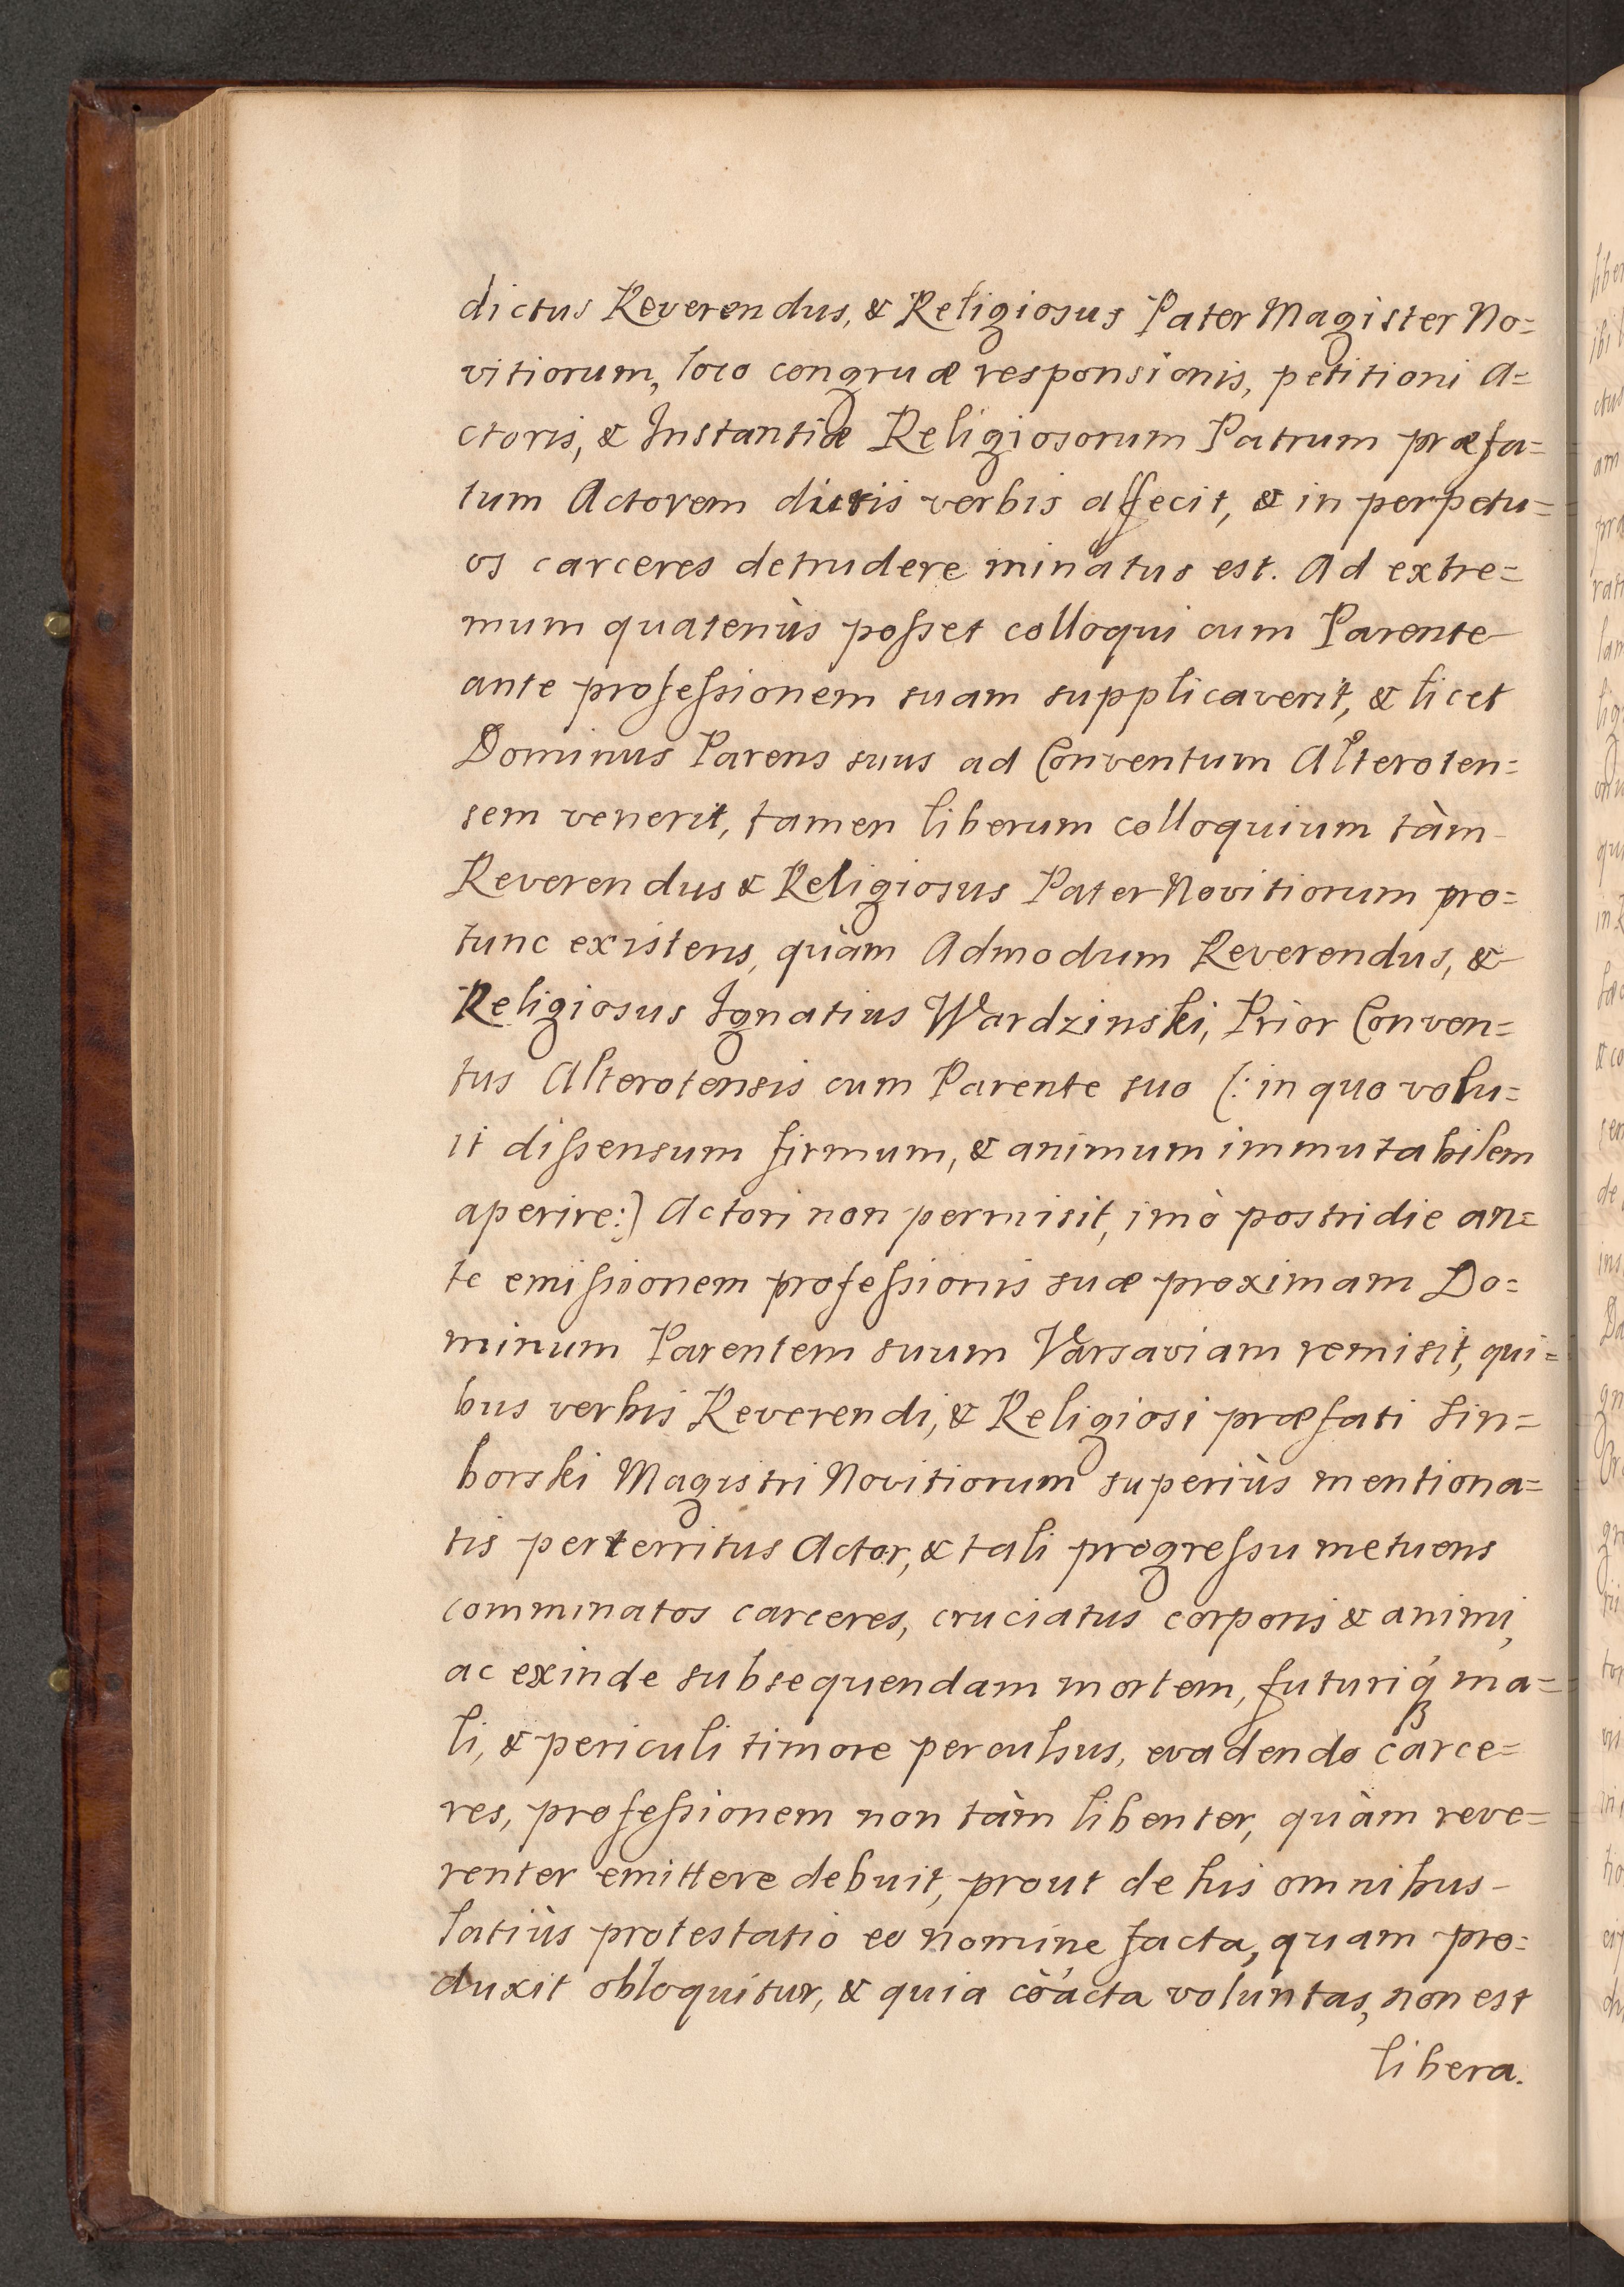 dictus Reverendus, & Religiosus Pater Magister No=
vitiorum, loco congruæ responsionis, petitioni A=
ctoris, & Instantiæ Religiosorum Patrum præfa=
tum Actorem duris verbis affecit, & in perpetu=
os carceres detrudere minatus est. Ad extre=
mum quatenùs poſset colloqui cum Parente
ante profeſsionem suam supplicaverit, & licet
Dominus Parens suus ad Conventum Alteroten=
sem venerit, tamen liberum colloquium tàm
Reverendus & Religiosus Pater Novitiorum pro=
tunc existens, quàm Admodum Reverendus, &
Religiosus Ignatius Wardzinski, Prior Conven=
tus Alterotensis cum Parente suo (: in quo volu=
it diſsensum firmum, & animum immutabilem
aperire:) Actori non permisit, imò postridie an=
te emiſsionem profeſsionis suæ proximam Do=
minum Parentem suum Varsaviam remisit, qui=
bus verbis Reverendi, & Religiosi præfati Sin=
borski Magistri Novitiorum superiùs mentiona=
tis perterritus Actor, & tali progreſsu metuens
comminatos carceres, cruciatus corporis & animi,
ac exinde subsequendam mortem, futuriq́ꝫ ma=
li, & periculi timore perculsus, evadendo carce=
res, profeſsionem non tàm libenter, quàm reve=
renter emittere debuit, prout de his omnibus
latiùs protestatio eo nomine facta, quam pro=
duxit obloquitur, & quia cöácta voluntas, non est
libera.